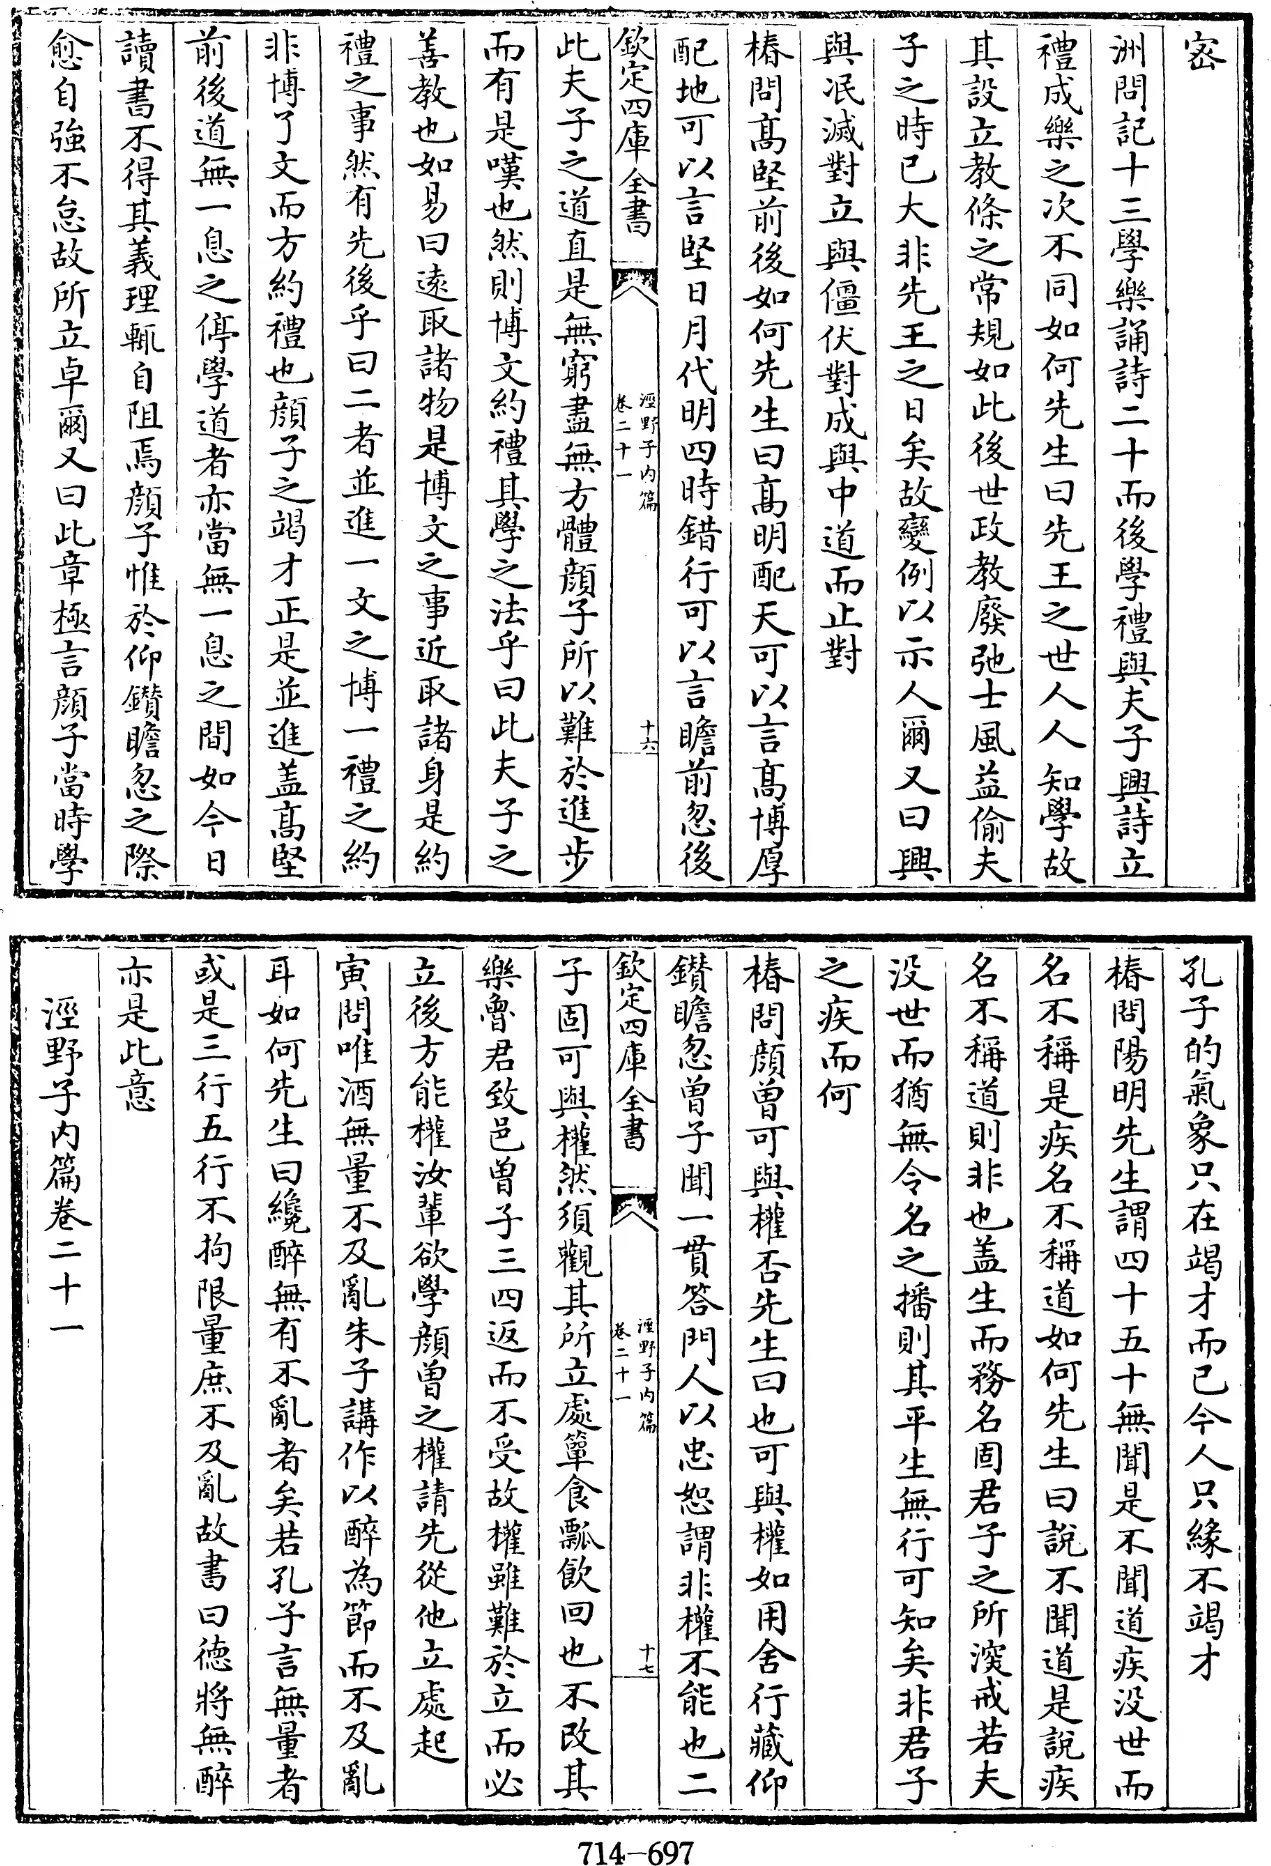 密
洲問記十三學樂誦詩二十而後學禮與夫子興詩立
禮成樂之次不同如何先生曰先王之世人人知學故
其設立教條之常規如此後世政教廢弛士風益偷夫
子之時已大非先王之日矣故變例以示人爾又曰興
與泯滅對立與僵伏對成與中道而止對
椿問髙堅前後如何先生曰髙明配天可以言髙博厚
配地可以言堅日月代明四時錯行可以言瞻前忽後
欽定四庫全書
涇野子内篇
卷二十一
十六
此夫子之道直是無窮盡無方體顔子所以難於進步
而有是嘆也然則博文約禮其學之法乎曰此夫子之
善教也如易曰逺取諸物是博文之事近取諸身是約
禮之事然有先後乎曰二者並進一文之博一禮之約
非博了文而方約禮也顔子之竭才正是並進盖髙堅
前後道無一息之停學道者亦當無一息之間如今日
讀書不得其義理輒自阻焉顔子惟於仰鑚瞻忽之際
愈自強不怠故所立卓爾又曰此章極言顔子當時學
孔子的氣象只在竭才而已今人只緣不竭才
椿問陽明先生謂四十五十無聞是不聞道疾没世而
名不稱是疾名不稱道如何先生曰說不聞道是說疾
名不稱道則非也盖生而務名固君子之所深戒若夫
没世而猶無令名之播則其平生無行可知矣非君子
之疾而何
椿問顔曽可與權否先生曰也可與權如用舍行藏仰
鑚瞻忽曽子聞一貫答門人以忠恕謂非權不能也二
欽定四庫全書
涇野子内篇
卷二十一
十七
子固可與權然須觀其所立處簞食瓢飲回也不改其
樂魯君致邑曽子三四返而不受故權雖難於立而必
立後方能權汝輩欲學顔曽之權請先從他立處起
寅問唯酒無量不及亂朱子講作以醉為節而不及亂
耳如何先生曰纔醉無有不亂者矣若孔子言無量者
或是三行五行不拘限量庶不及亂故書曰德將無醉
亦是此意
涇野子内篇卷二十一
714-697